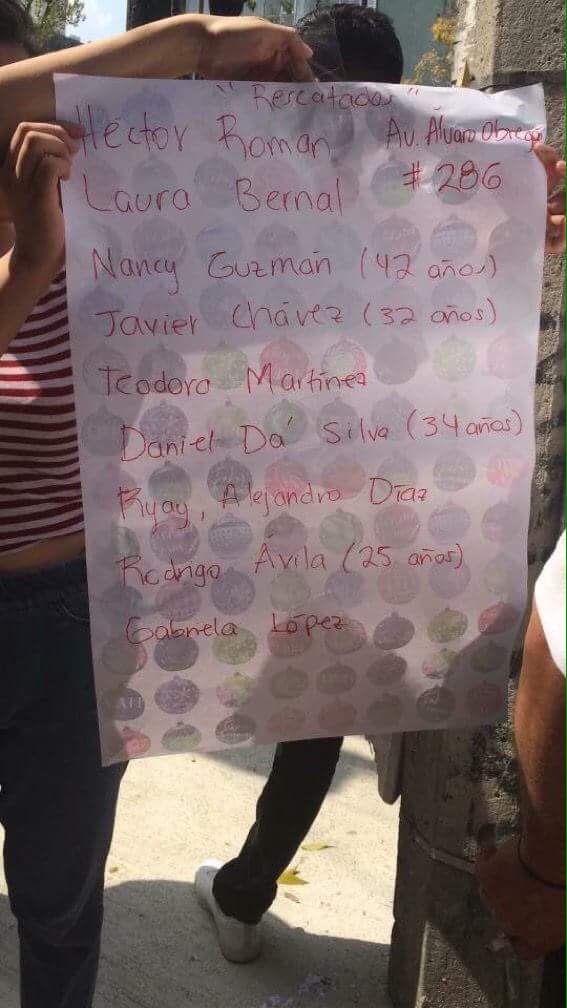 "Rescatados"
Héctor Roman Av. Álvaro Obregó
Laura Bernal # 286
Nancy Guzmán (42 años)
Javier Chávez (32 años)
Teodoro Martínez
Daniel Da' Silva (34 años)
Ryay, Alejandro Díaz
Rodrigo Ávila (25 años)
Gabriela López